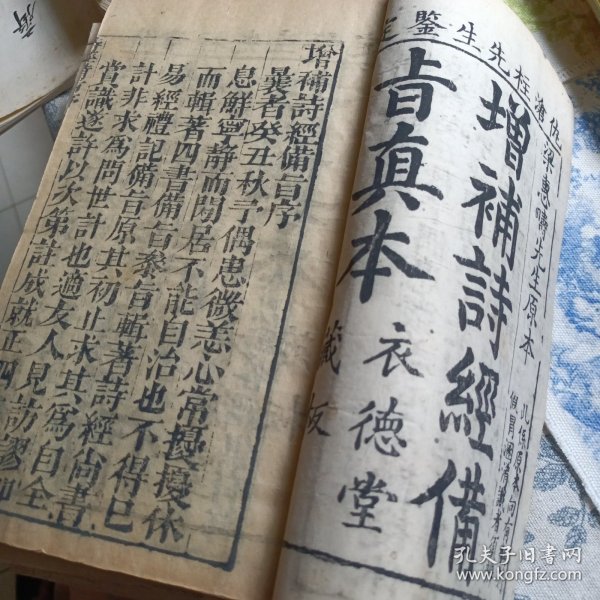 仇滄柱先生鑒定
梁惠疇先生原本
增補詩經備
旨真本
衣德堂
藏板
增補詩經備旨序
曩者癸丑秋予偶患微恙心常擾擾休
息解寧靜而閒居不能自治也不得已
而輯著四書備旨叅旨輯著詩經尙書
易經禮記備旨原其初止求其為自全
計非求為問世計也適友人見訪謬
賞識遂許以次第註成就正四
孔夫子旧书网
www.kongfz.com